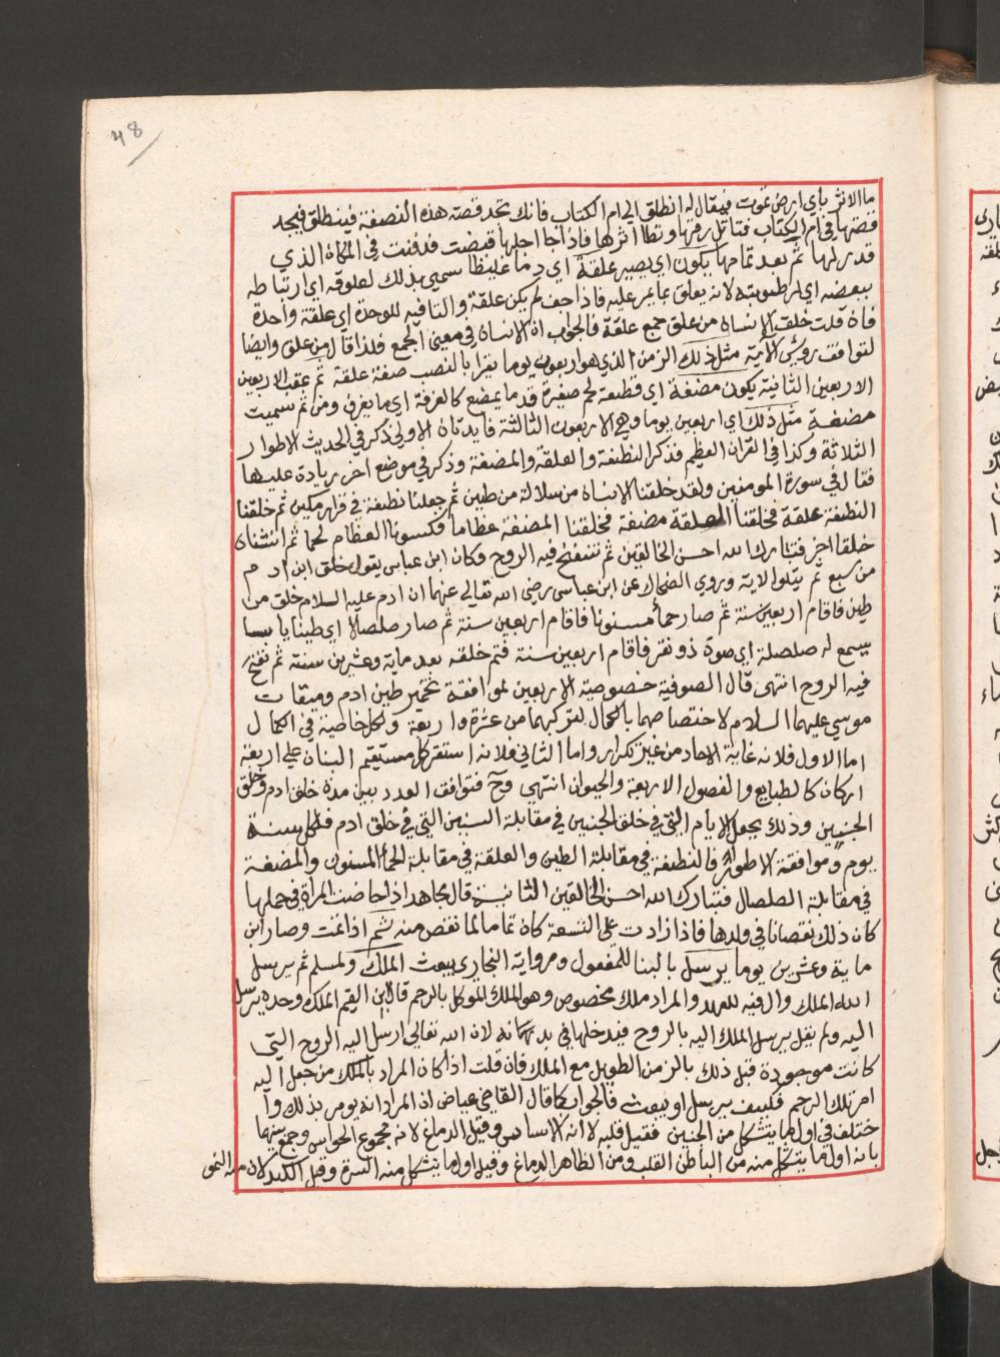 48
ما الاثر بأي ارض تموت فيقال له انطلق الي ام الكتاب فانك تجد قصة هذه النطفة فينطلق فيجد
قصتها في ام الكتاب فتاكل رزقها وتطا اثرها فاذا جا اجلها قبضت فدفنت في المكان الذي
قدر لها ثم بعد تمامها يكون اي يصير علقة اي دما غليظا سمي بذلك لعلوقه اي ارتباطه
ببعضه اي لرطوبته لانه يعلق بما يمر عليه فاذا جف لم يكن علقة والتا فيه للوحدة اي علقة واحدة
فان قلت خلق الانسان من علق جمع علقة فالجواب ان الانسان في معني الجمع فلذا قال من علق وايضا
لتوافق رؤس الآية مثل ذلك الزمن الذي هو اربعون يوما يقرا بالنصب صفة علقة ثم عقب الاربعين
الاربعين الثانية يكون مضغة اي قطعة لحم صغيرة قدر ما يمضغ كالغرفة اي ما يغرف ومن ثم سميت
مضغة مثل ذلك اي اربعين يوما وهي الاربعون الثالثة فايدتان الاولي ذكر في الحديث الاطوار
الثلاثة وكذا في القران العظيم فذكر النطفة والعلقة والمضغة وذكر في موضع اخر زيادة عليها
فقال في سورة المومنين ولقد خلقنا الانسان من سلالة من طين ثم جعلنا نطفة في قرار مكين ثم خلقنا
النطفة علقة فخلقنا العلقة مضغة فخلقنا المضغة عظاما فكسونا العظام لحما ثم انشاناه
خلقا اخر فتبارك الله احسن الخالقين ثم تنفخ فيه الروح وكان ابن عباس يقول خلق ابن ادم
من سبع ثم يتلوا الاية وروي الضحاك عن ابن عباس رضي الله تعالي عنهما ان ادم عليه السلام خلق من
طين فاقام اربعين سنة ثم صار حمأ مسنونا فاقام اربعين سنة ثم صار صلصالا اي طينا يابسا
يسمع له صلصلة اي صوة ذو نقر فاقام اربعين سنة فتم خلقه بعد ماية وعشرين سنة ثم نفخ
فيه الروح انتهي قال الصوفية خصوصية الاربعين لموافقة تخمير طين ادم وميقات
موسي عليهما السلام لاختصاصها بالكمال لتركبهما من عشرة واربعة ولكل خاصية في الكمال
اما الاول فلانه غاية الاحاد من غير تكرار واما الثاني فلانه استقر كل مستقيم البنان علي اربعة
اركان كالطبايع والفصول الاربعة والحيوان انتهي وح فتوافق العدد بين مدة خلق ادم وخلق
الجنين وذلك بجعل الايام التي في خلق الجنين في مقابلة السنين التي في خلق ادم فلكل سنة
يوم وموافقة الاطوار فالنطفة في مقابلة الطين والعلقة في مقابلة الحمأ المسنون والمضغة
في مقابلة الصلصال فتبارك الله احسن الخالقين الثانية قال مجاهد اذا حاضت المراة في حملها
كان ذلك نقصانا في ولدها فاذا زادت علي التسعة كان تماما لما نقص منه ثم اذا تمت وصار ابن
ماية وعشرين يوما يرسل بالبنا للمفعول ورواية البخاري يبعث الملك ولمسلم ثم يرسل
الله الملك وال فيه للعهد والمراد ملك مخصوص وهو الملك الموكل بالرحم قال ابن القيم الملك وحده يرسل
اليه ولم يقل يرسل الملك اليه بالروح فيدخلها في بدنه لانه لان الله تعالي ارسل اليه الروح التي
كانت موجودة قبل ذلك بالزمن الطويل مع الملك فان قلت اذا كان المراد بالملك من جعل اليه
امر تلك الرحم فكيف يرسل او يبعث فالجواب كما قال القاضي عياض اذ المراد انه يومر بذلك وا
ختلف في اول ما يتشكل من الجنين فقيل قلبه لانه الاساس وقيل الدماغ لانه مجموع الحواس وجمع بينهما
بانه اول ما يتشكل منه من الباطن القلب ومن الظاهر الدماغ وقيل اول ما يتشكل منه السرة وقيل الكبد لان منه النمو